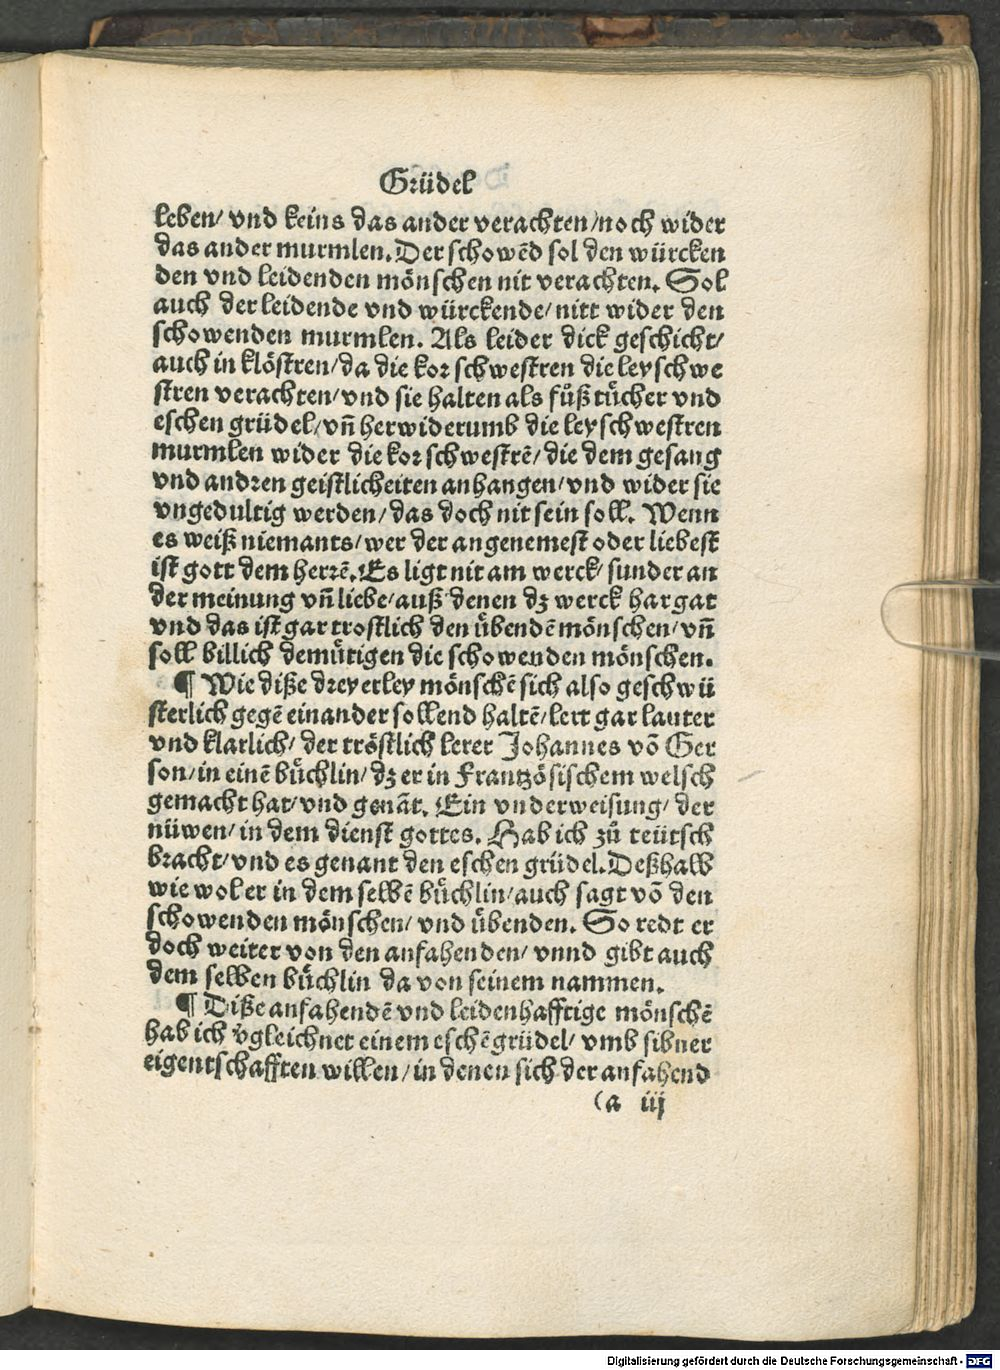 Grüdel
leben/ vnd keins das ander verachten/noch wider
das ander murmlen. Der schowēd sol den würcken
den vnd leidenden mönschen nit verachten. Sol
auch der leidende vnd würckende/ nitt wider den
schowenden murmlen. Als leider dick geschicht/
auch in klöstren/da die kor schwestren die ley schwe
stren verachten/vnd sie halten als fůßtücher vnd
eschen grüdel/vn̄ herwiderumb die ley schwestren
murmlen wider die kor schwestrē/ die dem gesang
vnd andren geistlicheiten anhangen/vnd wider sie
vngedultig werden/das doch nit sein soll. Wenn
es weiß niemants/wer der angenemest oder liebest
ist gott dem herrē. Es ligt nit am werck/ sunder an
der meinung vn̄ liebe/auß denen dz werck har gat
vnd das ist gar trostlich den übendē mönschen/vn̄
soll billich demütigen die schowenden mönschen.
¶ Wie diße dreyerley mönschē sich also geschwü
sterlich gegē einander sollend haltē/lert gar lauter
vnd klarlich/ der tröstlich lerer Johannes vō Ger
son/in einē büchlin/dz er in Frantzösischem welsch
gemacht hat/vnd genāt. Ein vnderweisung/ der
nüwen/in dem dienst gottes. Hab ich zů teütsch
bracht/vnd es genant den eschen grüdel. Deßhalb
wie wol er in dem selbē büchlin/auch sagt vō den
schowenden mönschen/ vnd übenden. So redt er
doch weiter von den anfahenden/ vnnd gibt auch
dem selben büchlin da von seinem nammen.
¶ Diße anfahendē vnd leidenhafftige mönschē
hab ich v̄gleichnet einem eschēgrüdel/ vmb sibner
eigentschafften willen/in denen sich der anfahend
(a iij
Digitalisierung gefördert durch die Deutsche Forschungsgemeinschaft - DFG